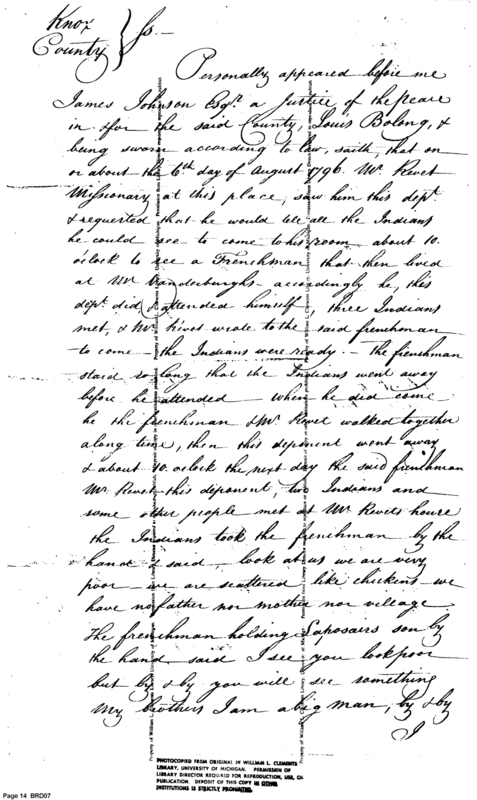 Knox
County } Ss. —
Personally appeared before me
James Johnson Esqr. a Justice of the peace
in & for the said County, Louis Bolong, &
being sworn according to law, saith, that on
or about the 6th day of August 1796. Mr Revet
Missionary at this place, saw him this dept.
& requested that he would tell all the Indians
he could see to come to his room about 10.
o'clock to see a Frenchman that then lived
at Mr Vanderburghs — accordingly he, this
dept. did & attended himself, three Indians
met, & Mr. Rivet wrote to the said frenchman
to come — the Indians were ready. — The frenchman
staid so long that the Indians went away
before he attended — when he did come
he the frenchman & Mr. Revet walked together
a long time, then this deponent went away
& about 10. oclock the next day the said frenchman
Mr. Revet this deponent, two Indians and
some other people met at Mr Revets house
the Indians took the frenchman by the
hand & said — look at us we are very
poor — we are scattered like chickens — we
have no father nor mother nor village
The frenchman holding Laposairs son by
the hand said I see you look poor
but by & by you will see something
My brothers I am a big man, by & by
I
PHOTOCOPIED FROM ORIGINAL IN WILLIAM L. CLEMENTS
LIBRARY, UNIVERSITY OF MICHIGAN. PERMISSION OF
LIBRARY DIRECTOR REQUIRED FOR REPRODUCTION, USE, OR
PUBLICATION. DEPOSIT OF THIS COPY IN OTHER
INSTITUTIONS IS STRICTLY PROHIBITED.
Page 14 BRD07